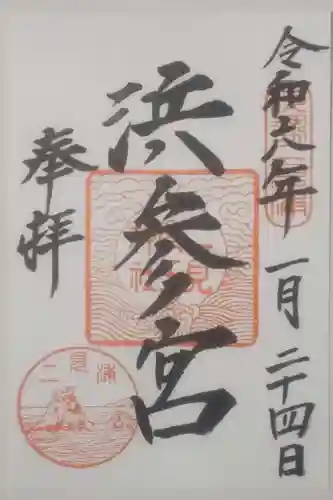 令和六年一月二十四日
浜参宮
奉拝
二見浦